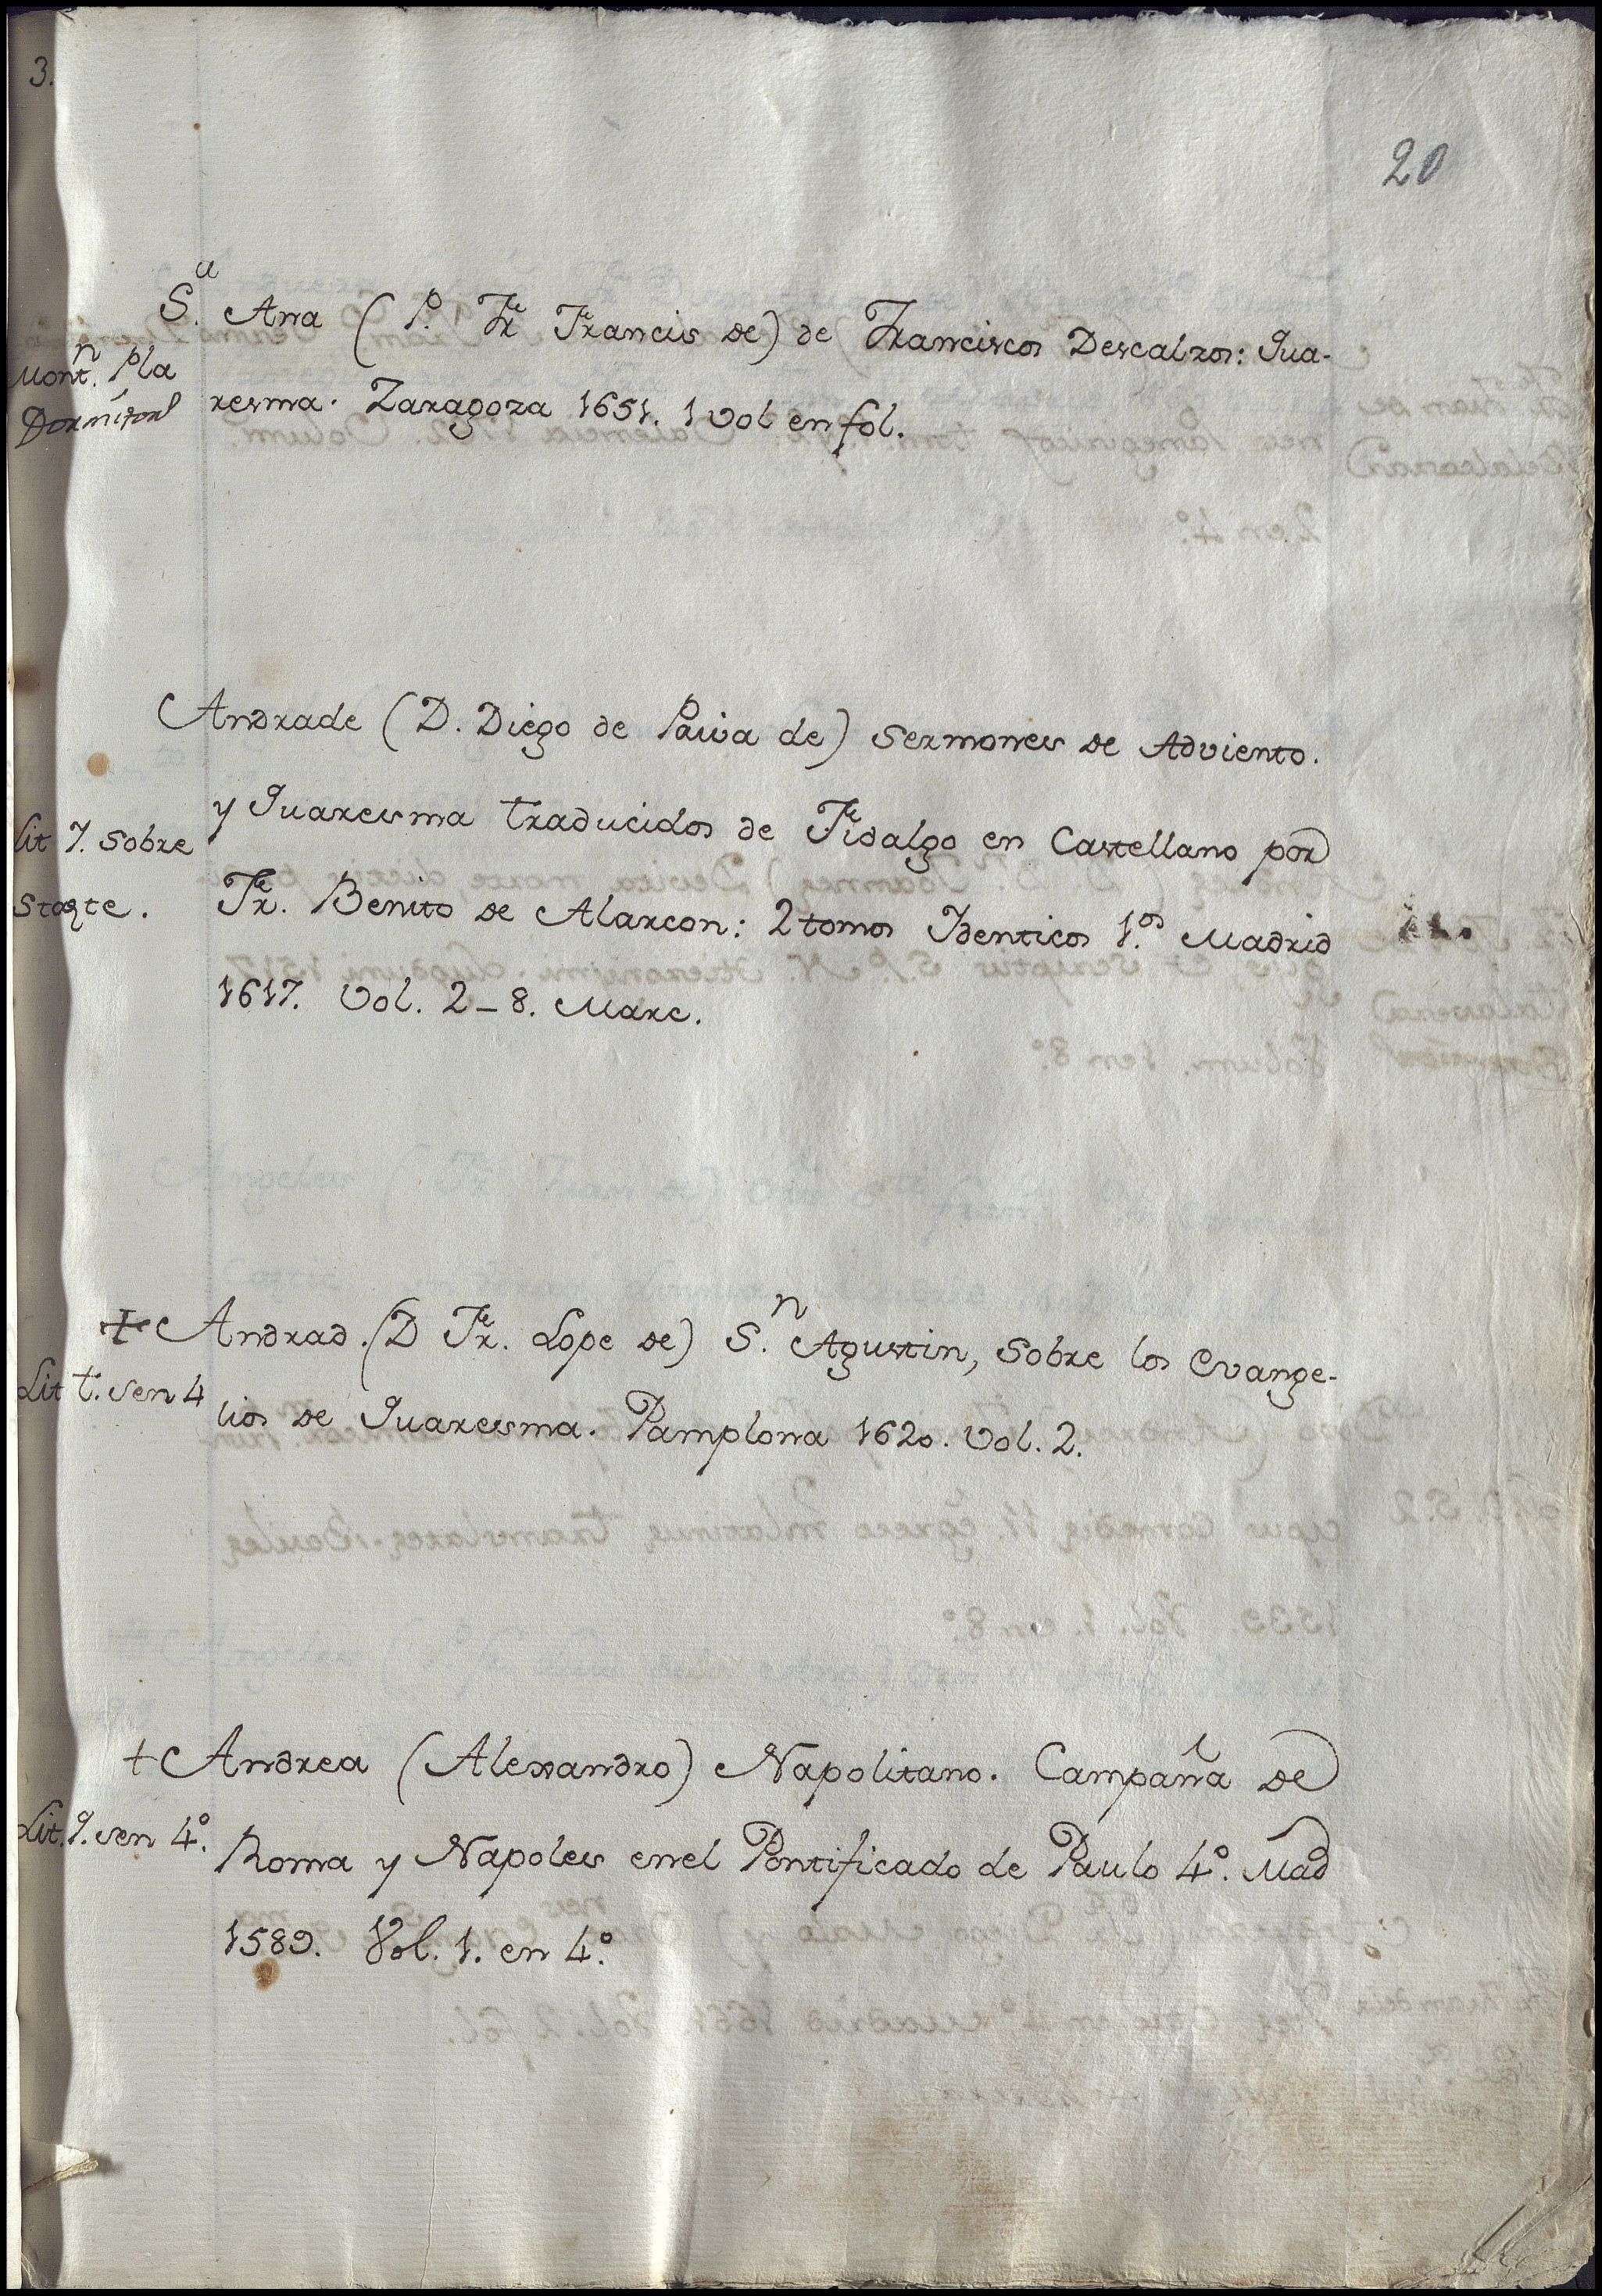 3.
20
S.ª Anna (P. Fr Francis de) de Franciscos Descalzos: Qua-
Mont.n Pla
resma. Zaragoza 1651. 1 Vol en fol.
Dormitorl
Andrade (D. Diego de Paiva de) Sermones de Adviento.
y Quaresma traducidos de Fidalgo en Castellano por
Lit 7. Sobre
Fr. Benito de Alarcon: 2 tomos Identicos 1.os Madrid
1617. Vol. 2_8. Marc.
+ Andrad. (D Fr. Lope de) S.n Agustin, Sobre los Evange-
Lit t. sen 4
lios de Quaresma. Pamplona 1620. Vol. 2.
+ Andrea (Alexandro) Napolitano. Campaña de
Lit. 9. sen 4º.
Roma y Napoles enel Pontificado de Paulo 4º. Mad
1589. Vol. 1. en 4º.